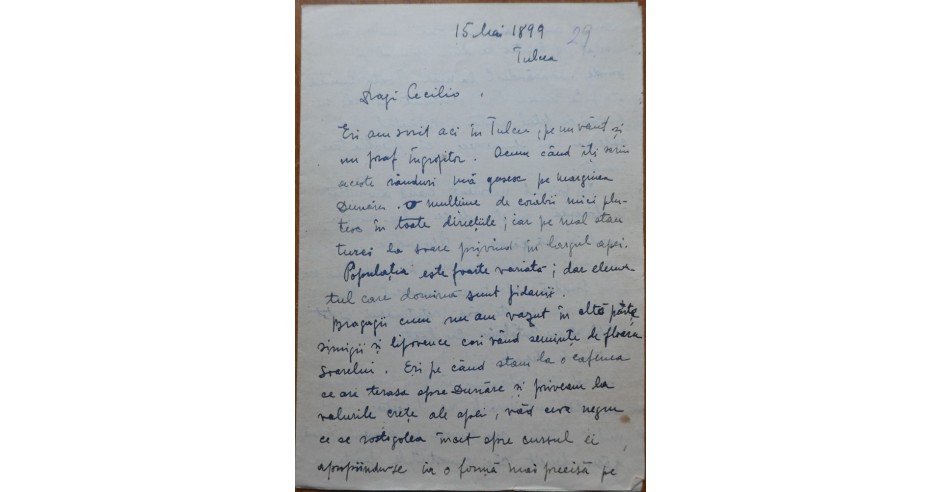 15 Mai 1899
29
Tulcea
Dragi Cecilio,
Eri am sosit aci în Tulcea, pe un vânt și
un praf îngrozitor. Acuma când îți scriu
aceste rânduri mă găsesc pe marginea
Dunării. O mulțime de corăbii mici plu-
tesc în toate direcțiile; iar pe mal stau
turci la soare privind în lungul apei.
Populația este foarte variată; dar elemen-
tul care domină sunt jidanii.
Bragagii cum nu am văzut în altă parte,
simigii și lipovence cari vând semințe de floarea
soarelui. Eri pe când stam la o cafenea
ce are terasa spre Dunăre și priveam la
valurile crețe ale apei, văd ceva negru
ce se rostogolea încet spre cursul ei
apropiindu-se ia o formă mai precisă pe